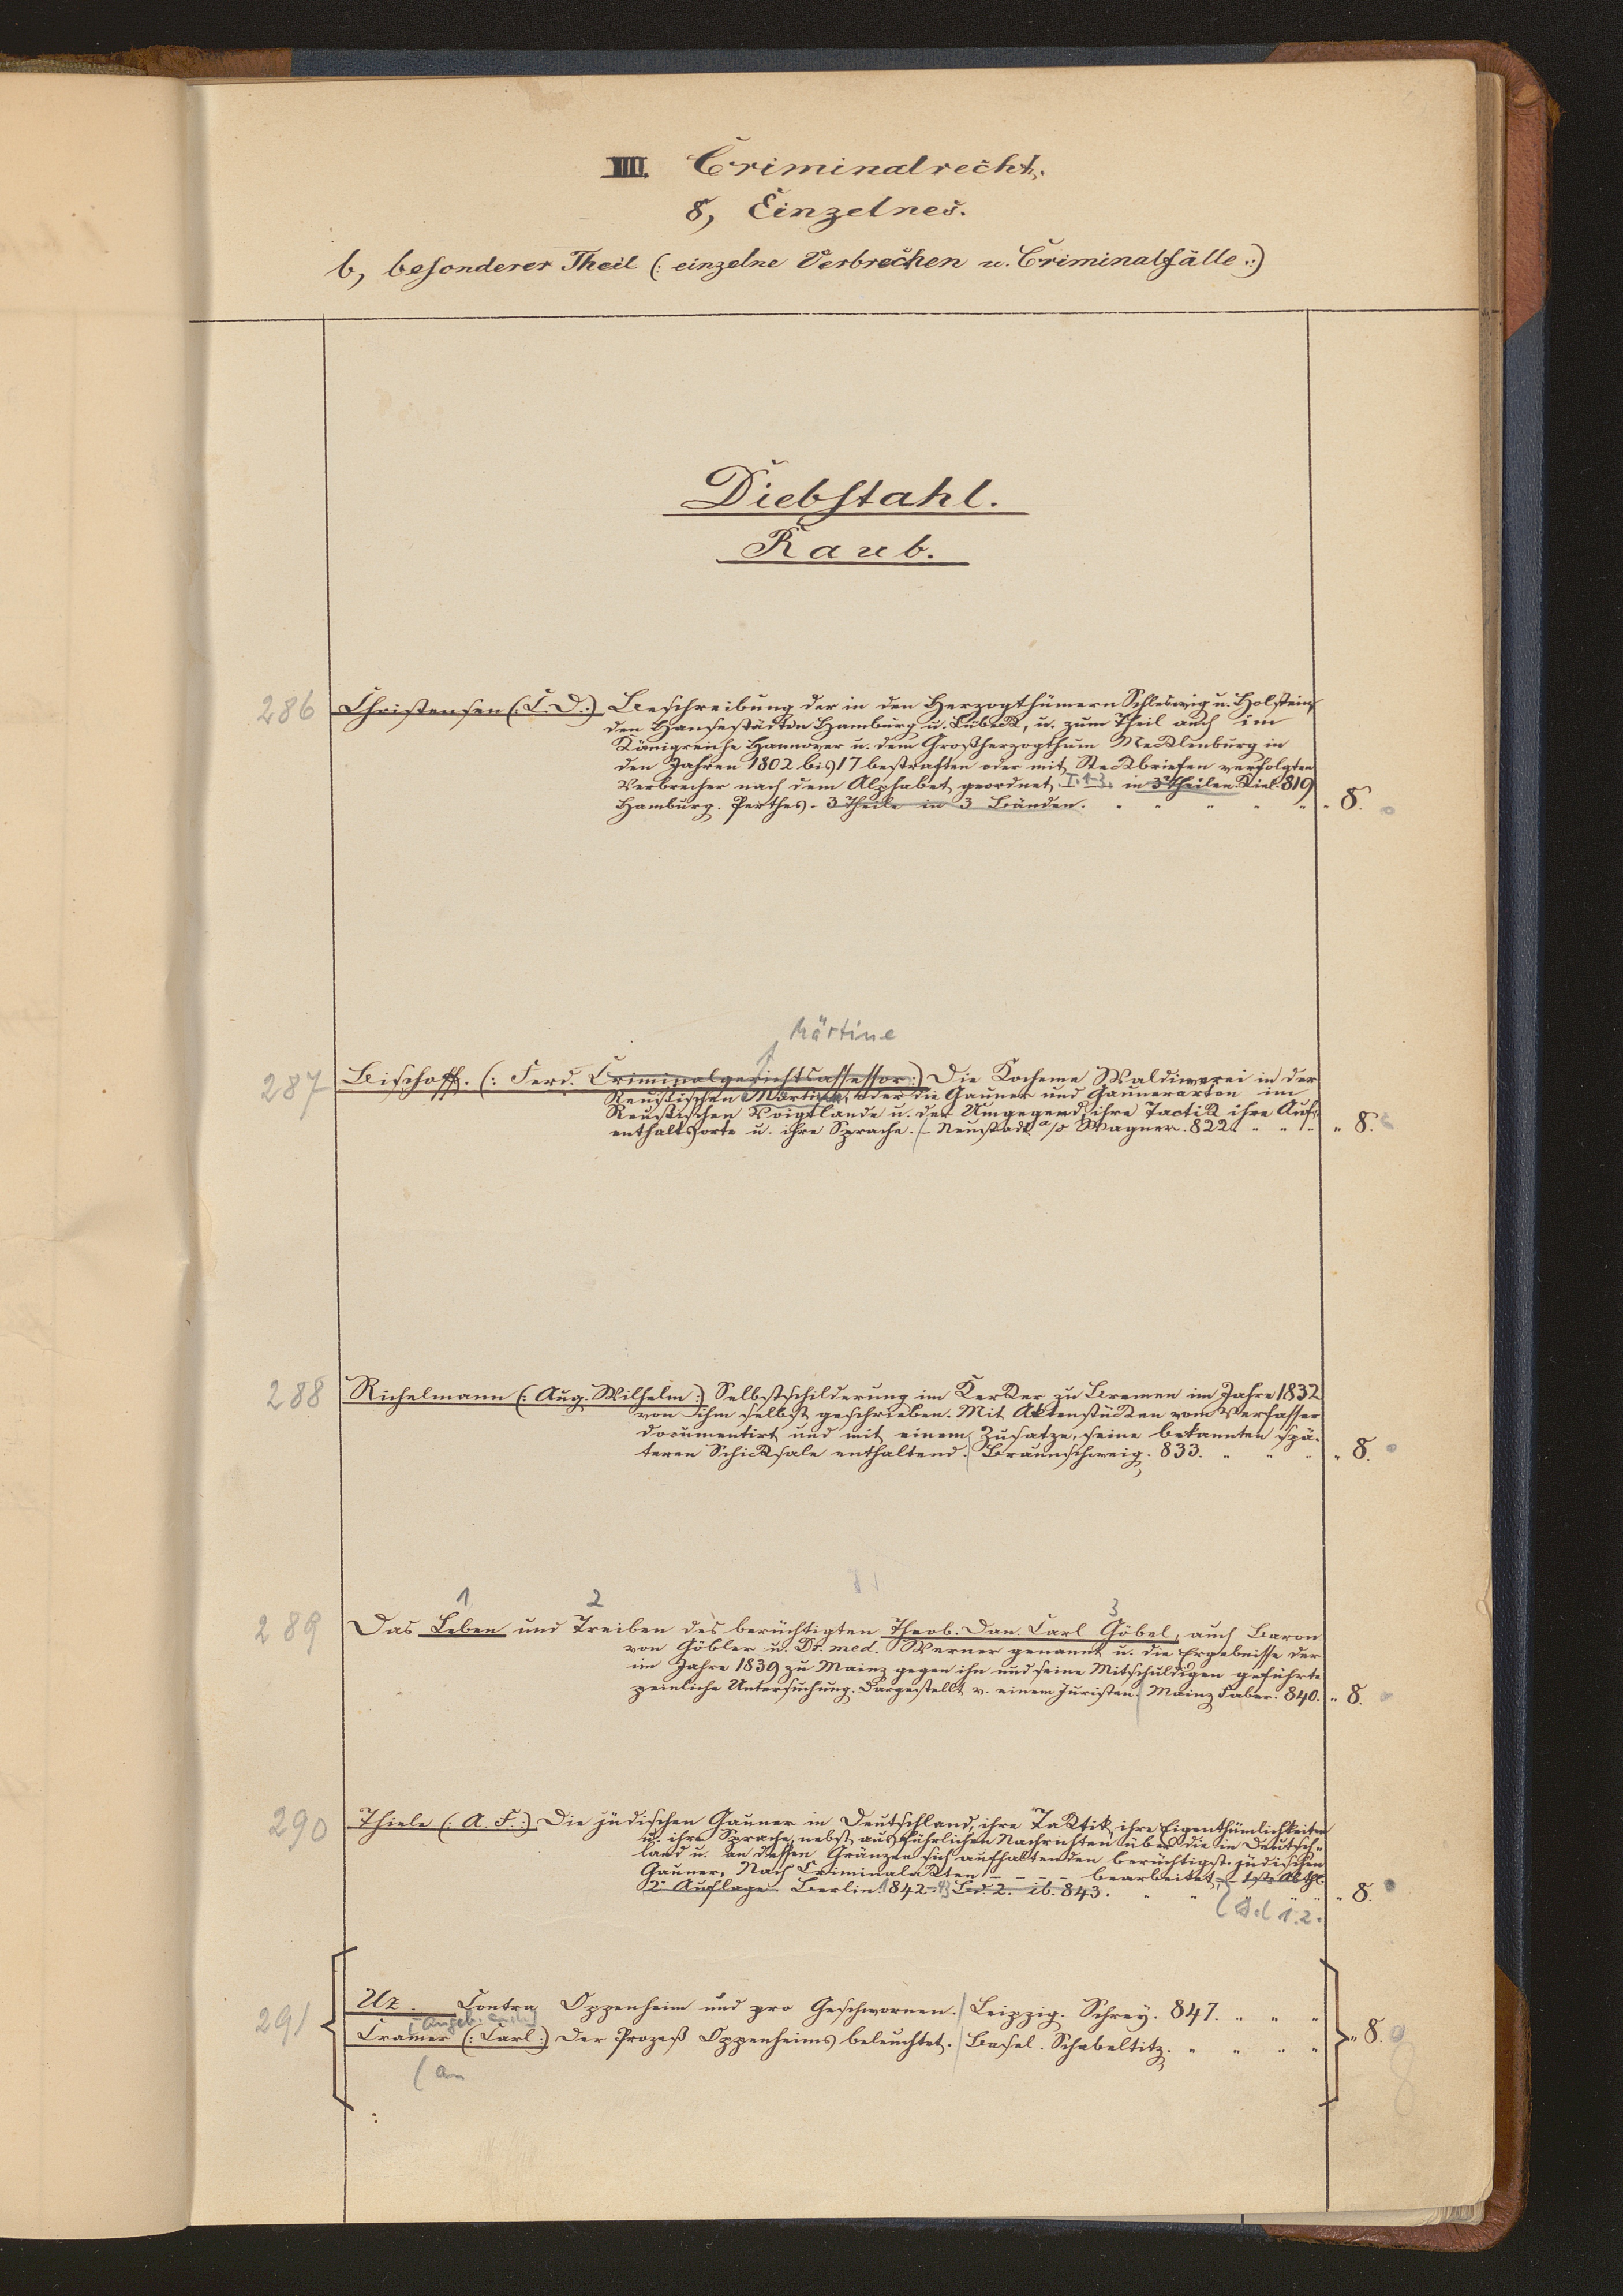 VIII. Criminalrecht.
8, Einzelnes.
b, besonderer Theil (: einzelne Verbrechen u. Criminalfälle :)
Diebstahl.
Raub.
286 Christensen (: C. D. :) Beschreibung der in den Herzogthümern Schleswig u. Holstein,
den Hansestädten Hamburg u. Lübeck, u. zum Theil auch im
Königreiche Hannover u. dem Großherzogthum Mecklenburg in
den Jahren 1802 bis 17 bestraften oder mit Steckbriefen verfolgten
Verbrecher nach dem Alphabet geordnet. T. 1-3. in 3 Theilen. Kiel. 819
Hamburg. Perthes. 3 Theile in 3 Bänden. " " " " " " 8.
Märtine
287 Bischoff. (: Ferd. Criminalgerichtsassessor :) Die Kocheme Waldiwerei in der
Reußischen Märtine, oder die Gauner und Gaunerarten im
Reußischen Voigtlande u. der Umgegend, ihre Tactik ihre Auf-
enthaltsorte u. ihre Sprache. - Neustadt a/o Wagner. 822. " " " " 8.
288 Richelmann (: Aug. Wilhelm :) Selbstschilderung im Kerker zu Bremen im Jahre 1832
von ihm selbst geschrieben. Mit Aktenstücken vom Verfasser
documentirt und mit einem Zusatze, seine bekannten spä-
teren Schicksale enthaltend. Braunschweig. 833. " " " " 8.
1 2 3
289 Das Leben und Treiben des berüchtigten Theob. Dan. Carl Göbel, auch Baron
von Göbler u. Dr. med. Werner genannt u. die Ergebnisse der
im Jahre 1839 zu Mainz gegen ihn und seine Mitschuldigen geführte
peinliche Untersuchung. Dargestellt v. einem Juristen. Mainz Faber. 840. " 8.
290 Thiele (: A. F. :) Die jüdischen Gauner in Deutschland, ihre Taktik, ihre Eigenthümlichkeiten
u. ihre Sprache, nebst ausführlichen Nachrichten über die in Deutsch-
land u. an dessen Gränzen sich aufhaltenden berüchtigst. jüdischen
Gauner, Nach Criminalakten - - - - bearbeitet, - 1ste Abthl.
2. Auflage. Berlin. 1842. -43 Bd. 2. ib. 843. " " " " " " 8.
1.2.
291 Uz. Contra Oppenheim und pro Geschwornen. Leipzig. Schrey. 847. " " "
Cramer (: Carl :) Der Prozeß Oppenheims beleuchtet. Basel. Schabelitz. " " " " " 8.
(an